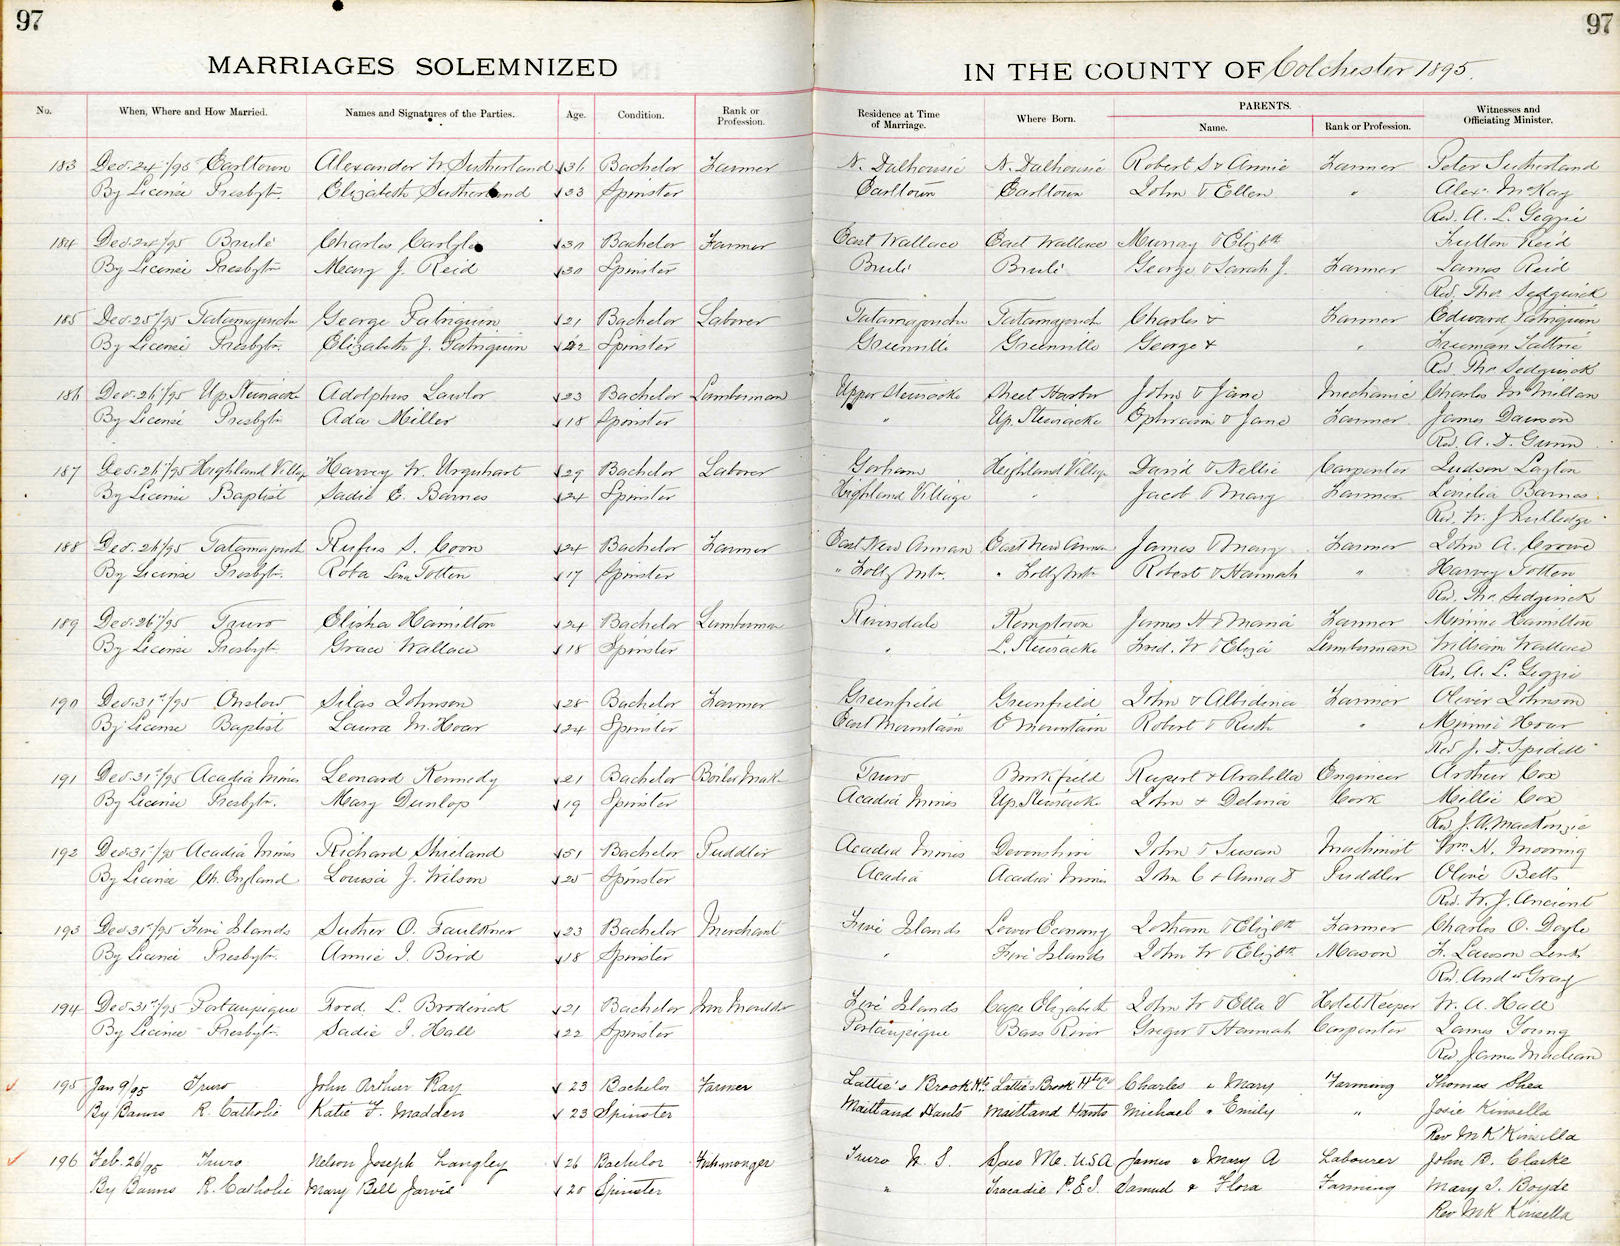 97
97
MARRIAGES SOLEMNIZED IN THE COUNTY OF Colchester 1895.
No. When, Where and How Married. Names and Signatures of the Parties. Age. Condition. Rank or Profession. Residence at Time of Marriage. Where Born. PARENTS. Name. Rank or Profession. Witnesses and Officiating Minister.
183 Dec. 24/95 Earltown Alexander W. Sutherland 36 Bachelor Farmer N. Dalhousie N. Dalhousie Robert S & Annie Farmer Peter Sutherland
By License Presbytn. Elizabeth Sutherland 33 Spinster Earltown Earltown John & Ellen " Alex. McKay
Rev. A. L. Geggie
184 Dec. 24/95 Brulé Charles Carlyle 30 Bachelor Farmer East Wallace East Wallace Murray & Elizbth Fulton Reid
By License Presbytn Mary J. Reid 30 Spinster Brulé Brulé George & Sarah J. Farmer James Reid
Rev. Thos. Sedgwick
185 Dec. 25/95 Tatamagouche George Patriquin 21 Bachelor Laborer Tatamagouche Tatamagouch Charles & Farmer Edward Patriquin
By License Presbytn. Elizabeth J. Patriquin 22 Spinster Greenville Greenville George & " Freeman Tattrie
Rev. Thos. Sedgwick
186 Dec. 26/95 Up. Stewiacke Adolphus Lawlor 23 Bachelor Lumberman Upper Stewiacke Sheet Harbor John & Jane Mechanic Charles McMillan
By License Presbytn Ada Miller 18 Spinster " Up. Stewiacke Ephraim & Jane Farmer James Dawson
Rev. A. D. Gunn
187 Dec. 26/95 Highland Village Harvey W. Urquhart 29 Bachelor Laborer Gorham Highland Village David & Nellie Carpenter Judson Layton
By License Baptist Sadie E. Barnes 24 Spinster Highland Village " Jacob & Mary Farmer Barnes
Rev. W. J. Rutledge
188 Dec. 26/95 Tatamagouch Rufus S. Coon 24 Bachelor Farmer East New Annan East New Annan James & Mary Farmer John A. Crowe
By License Presbytn. Roba Lena Totten 17 Spinster " " Robert & Hannah " Harvey Totten
Rev. Thos. Sedgwick
189 Dec. 26/95 Truro Elisha Hamilton 24 Bachelor Lumberman Riversdale Kemptown James H & Maria Farmer Minnie Hamilton
By License Presbytn Grace Wallace 18 Spinster " L. Stewiacke Fred. W & Eliza Lumberman William Wallace
Rev. A. L. Geggie
190 Dec. 31st/95 Onslow Silas Johnson 28 Bachelor Farmer Greenfield Greenfield John & Albidina Farmer Oliver Johnson
By License Baptist Laura M. Hoar 24 Spinster East Mountain E Mountain Robert & Ruth " Minnie Hoar
Rev J. D. Spidell
191 Dec. 31st/95 Acadia Mines Leonard Kennedy 21 Bachelor Boiler Mak Truro Brookfield Rupert & Arabilla Engineer Arthur Cox
By License Presbytn. Mary Dunlop 19 Spinster Acadia Mines Up. Stewiacke John & Delina Millie Cox
Rev. J. A. MacKenzie
192 Dec. 31st/95 Acadia Mines Richard Shieland 51 Bachelor Puddler Acadia Mines Devonshire John & Susan Machinist Wm. H. Mooring
By License Ch. England Louisa J. Wilson 25 Spinster Acadia Acadia Mines John C & Anna D Puddler Olive Betts
Rev. W. J. Ancient
193 Dec. 31st/95 Five Islands Suther O. Faulkner 23 Bachelor Merchant Five Islands Lower Economy Lotham & Elizbth Farmer Charles O. Doyle
By License Presbytn. Annie I. Bird 18 Spinster " Five Islands John W & Elizbth Mason F. Lawson Lenk
Rev. Andw Gray
194 Dec. 31st/95 Portaupique Fred. L. Broderick 21 Bachelor Iron Moulder Five Islands Cape Elizabeth John W & Ella V Hotel Keeper W. A. Hall
By License Presbytn. Sadie I. Hall 22 Spinster Portaupique Bass River Gregor & Hannah Carpenter James Young
Rev. James Maclean
195 Jan 9/95 Truro John Arthur Ray 23 Bachelor Farmer Lattie's Brook Hts Lattie's Brook Hts Co Charles & Mary Farming Thomas Shea
By Banns R. Catholic Katie F. Madden 23 Spinster Maitland Hants Maitland Hants Michael & Emily " Josie Kinsella
Rev M K Kinsella
196 Feb. 26/95 Truro Nelson Joseph Langley 26 Bachelor Fishmonger Truro N. S. Saco Me. U.S.A James & Mary A Labourer John B. Clarke
By Banns R. Catholic Mary Bell Jarvis 20 Spinster " Tracadie P.E.I. Samuel & Flora Farming Mary I. Boyde
Rev M K Kinsella